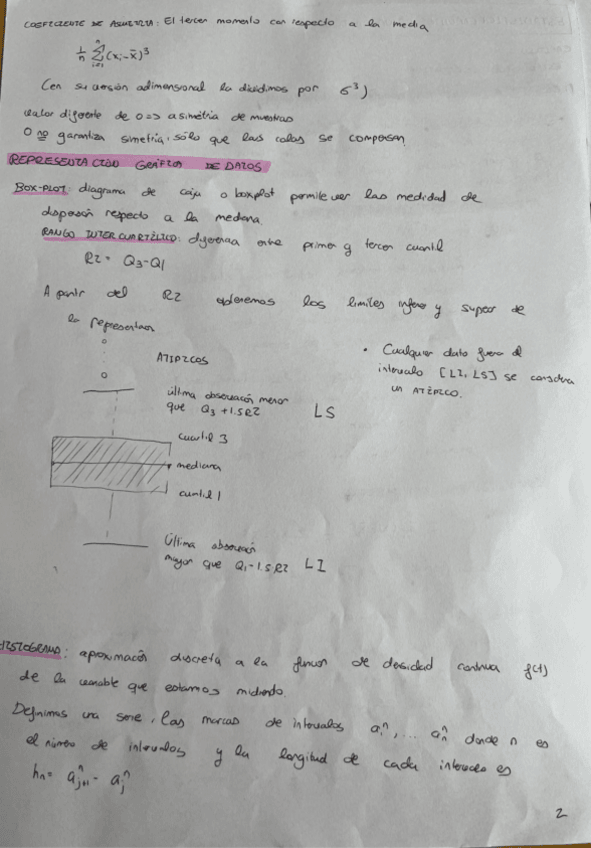 COEFICIENTE DE ASIMETRIA: El tercer momento con respecto a la media
1/n Σ_{i=1}^{n} (xi - x̄)³
(en su versión adimensional la dividimos por σ³)
valor diferente de 0 => asimetria de muestras
0 no garantiza simetria, sólo que las colas se compensan
REPRESENTACIÓN GRÁFICA DE DATOS
BOX-PLOT: diagrama de caja o boxplot permite ver las medidad de
dispersión respecto a la mediana.
RANGO INTERCUARTÍLICO: diferencia entre primer y tercer cuartil
RI = Q3-Q1
A partir del RI obtenemos los limites inferior y superior de
la representación
ATÍPICOS
• Cualquier dato fuera del
intervalo [LI, LS] se considera
un ATÍPICO.
última observación menor
que Q3 + 1.5 RI LS
cuartil 3
mediana
cuartil 1
Última observación
mayor que Q1 - 1.5 RI LI
HISTOGRAMA: aproximación discreta a la función de densidad continua f(t)
de la variable que estamos midiendo.
Definimos una serie, las marcas de intervalos a₁ⁿ, ... aₙⁿ donde n es
el número de intervalos y la longitud de cada intervalo es
hn = aⁿ_{j+1} - aⁿ_j
2